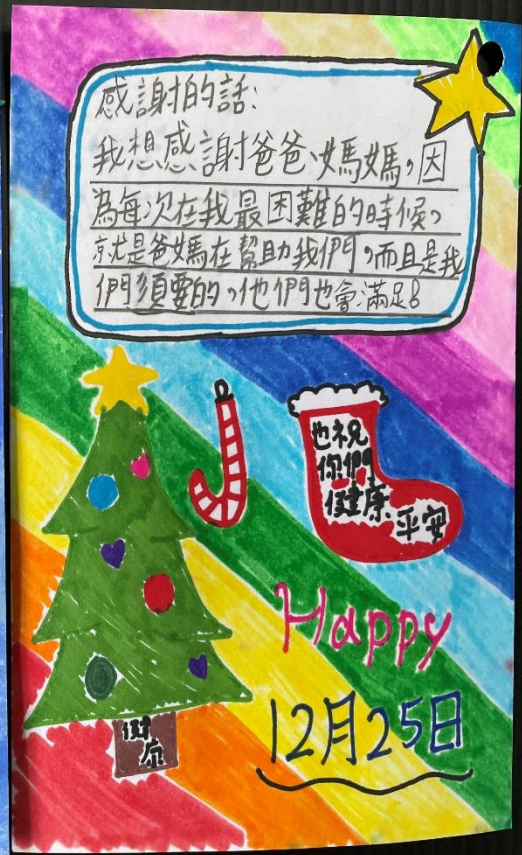 感謝的話:
我想感謝爸爸、媽媽,因
為每次在我最困難的時候,
就是爸媽在幫助我們,而且是我
們須要的,他們也會滿足!
也祝
你們
健康、
平安
Happy
12月25日
健
康